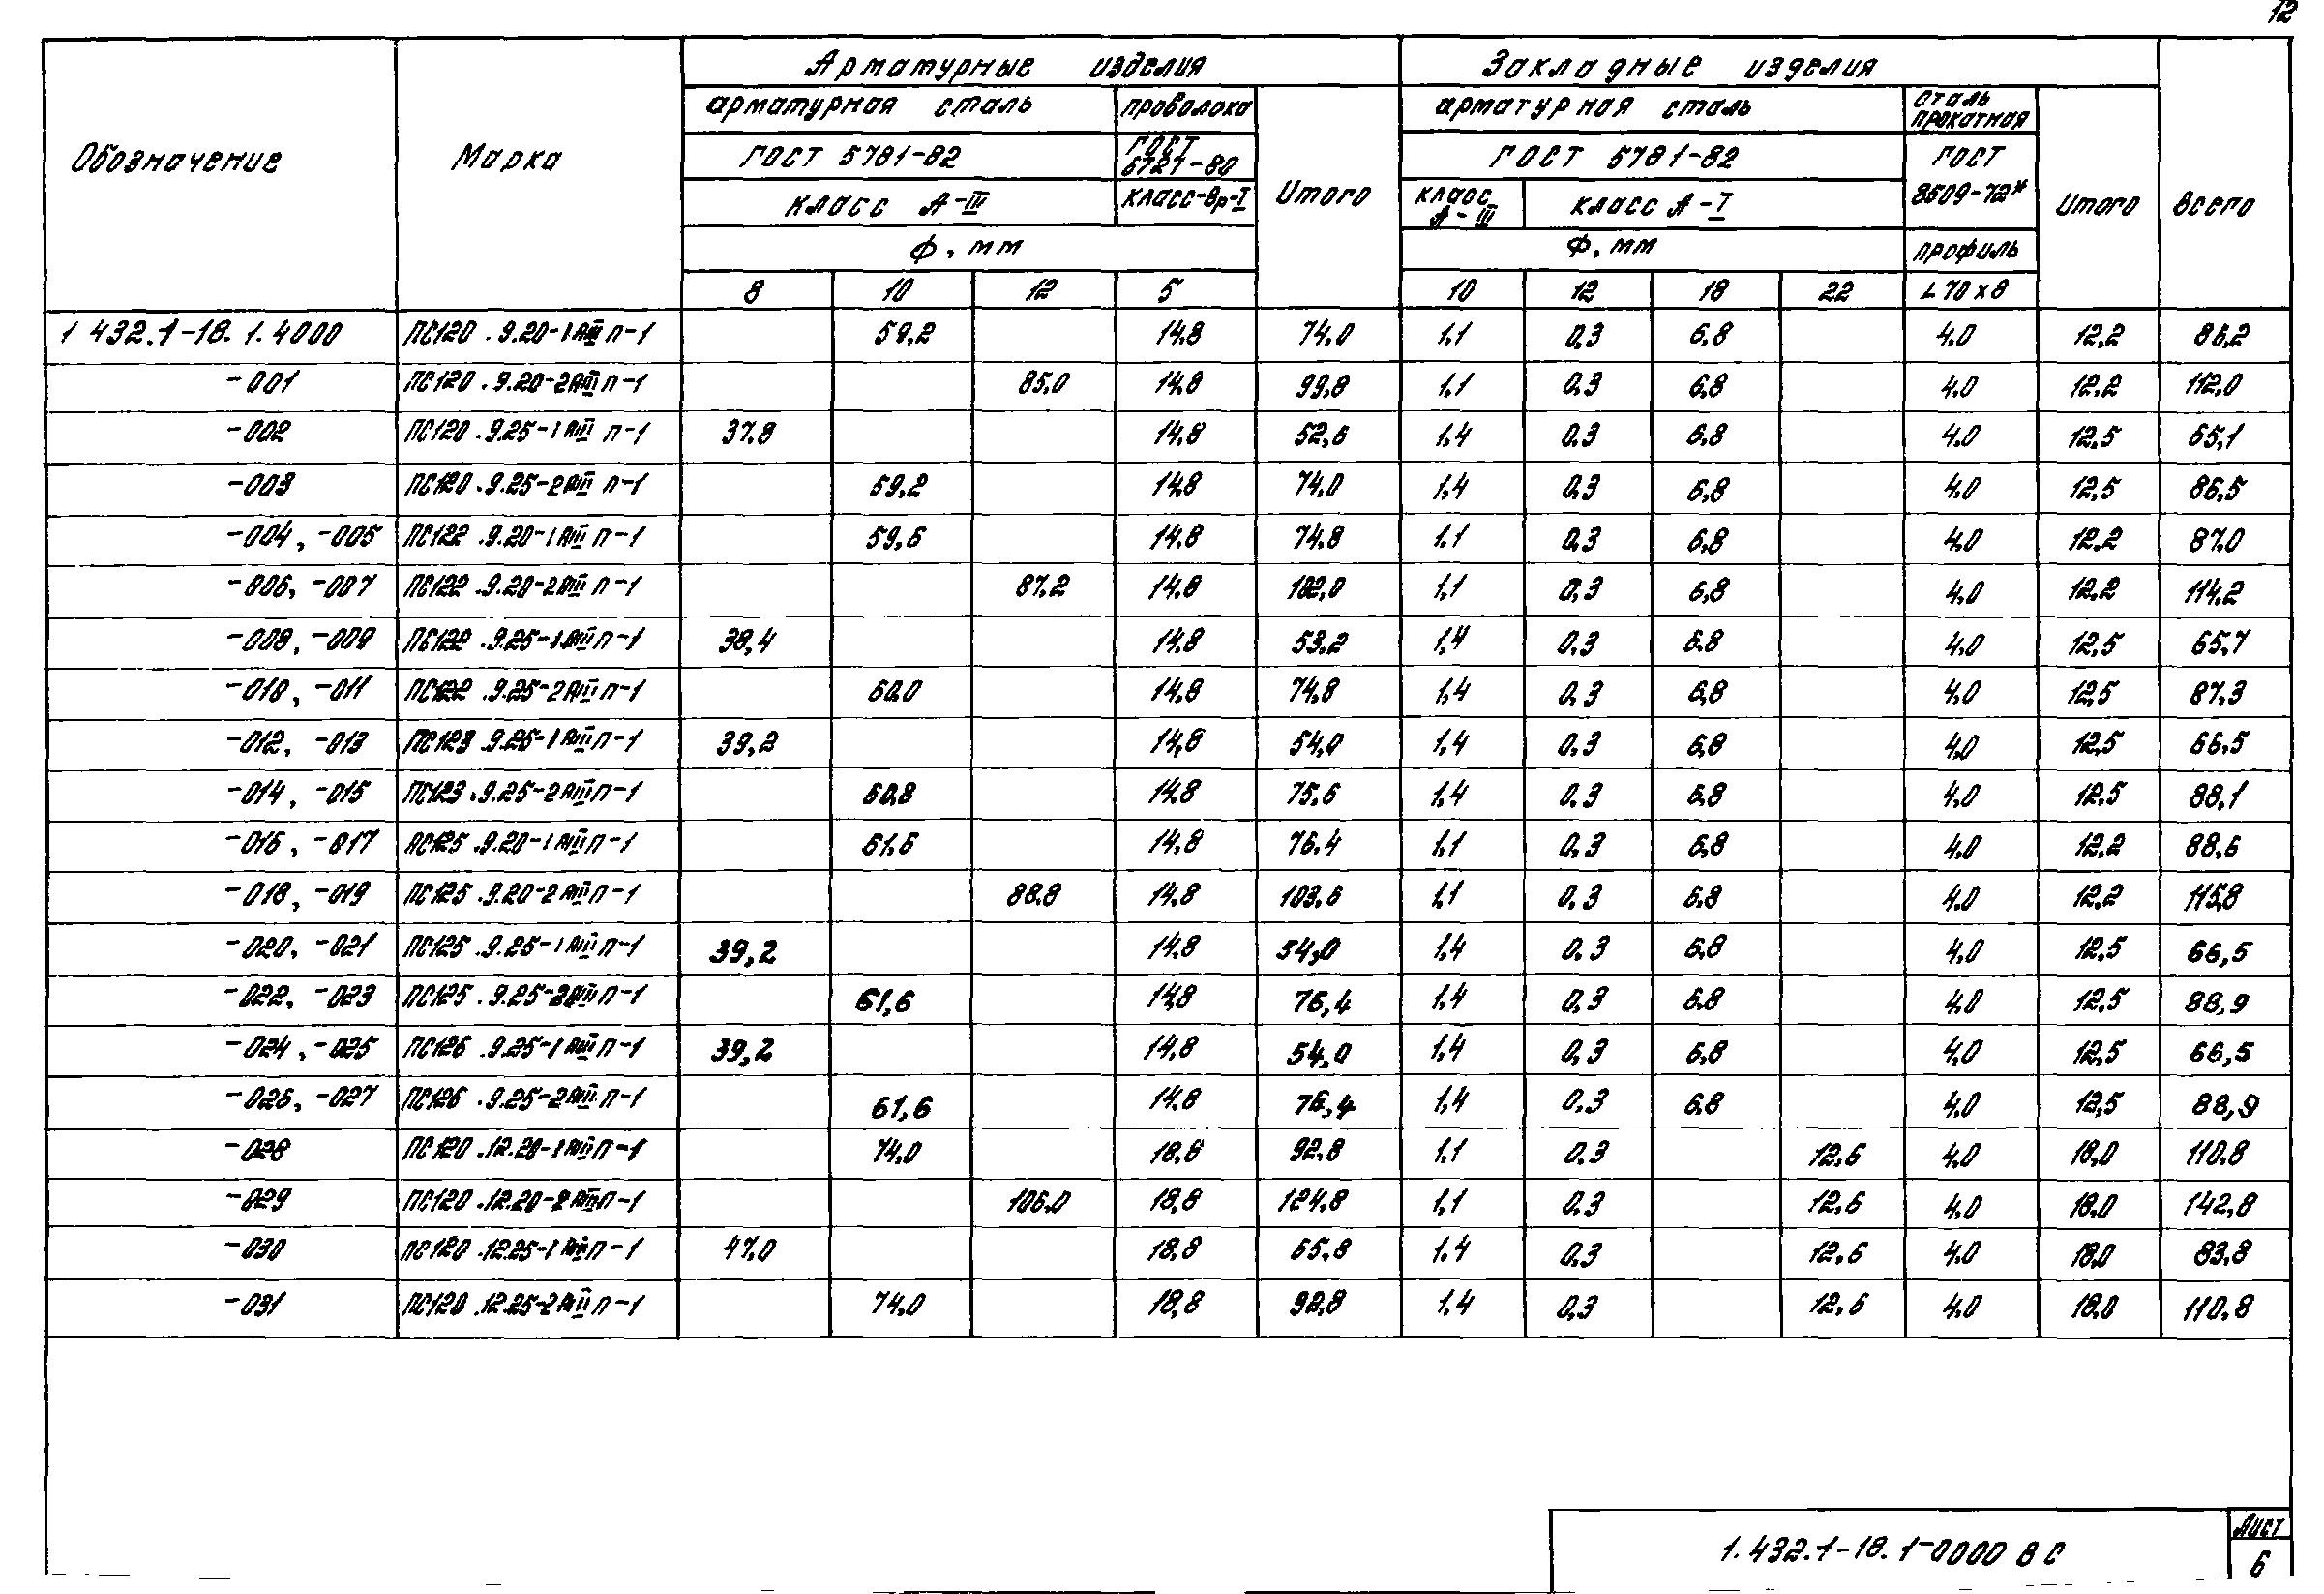 12
Арматурные изделия Закладные изделия
арматурная сталь проволока арматурная сталь сталь прокатная
Обозначение Марка ГОСТ 5781-82 ГОСТ 6727-80 Итого ГОСТ 5781-82 ГОСТ 8509-72* Итого Всего
класс А-III класс-Вр-I класс А-III класс А-I
ф, мм ф, мм профиль
8 10 12 5 10 12 18 22 L 70х8
1 432.1-18. 1.4000 ПС120.9.20-1АIIIп-1 59,2 14,8 74,0 1,1 0,3 6,8 4,0 12,2 86,2
-001 ПС120.9.20-2АIIIп-1 85,0 14,8 99,8 1,1 0,3 6,8 4,0 12,2 112,0
-002 ПС120.9.25-1АIIIп-1 37,8 14,8 52,6 1,4 0,3 6,8 4,0 12,5 65,1
-003 ПС120.9.25-2АIIIп-1 59,2 14,8 74,0 1,4 0,3 6,8 4,0 12,5 86,5
-004, -005 ПС122.9.20-1АIIIп-1 59,6 14,8 74,8 1,1 0,3 6,8 4,0 12,2 87,0
-006, -007 ПС122.9.20-2АIIIп-1 87,2 14,8 102,0 1,1 0,3 6,8 4,0 12,2 114,2
-008, -009 ПС122.9.25-1АIIIп-1 38,4 14,8 53,2 1,4 0,3 6,8 4,0 12,5 65,7
-010, -011 ПС122.9.25-2АIIIп-1 60,0 14,8 74,8 1,4 0,3 6,8 4,0 12,5 87,3
-012, -013 ПС123.9.25-1АIIIп-1 39,2 14,8 54,0 1,4 0,3 6,8 4,0 12,5 66,5
-014, -015 ПС123.9.25-2АIIIп-1 60,8 14,8 75,6 1,4 0,3 6,8 4,0 12,5 88,1
-016, -017 ПС125.9.20-1АIIIп-1 61,6 14,8 76,4 1,1 0,3 6,8 4,0 12,2 88,6
-018, -019 ПС125.9.20-2АIIIп-1 88,8 14,8 103,6 1,1 0,3 6,8 4,0 12,2 115,8
-020, -021 ПС125.9.25-1АIIIп-1 39,2 14,8 54,0 1,4 0,3 6,8 4,0 12,5 66,5
-022, -023 ПС125.9.25-2АIIIп-1 61,6 14,8 76,4 1,4 0,3 6,8 4,0 12,5 88,9
-024, -025 ПС126.9.25-1АIIIп-1 39,2 14,8 54,0 1,4 0,3 6,8 4,0 12,5 66,5
-026, -027 ПС126.9.25-2АIIIп-1 61,6 14,8 76,4 1,4 0,3 6,8 4,0 12,5 88,9
-028 ПС120.12.20-1АIIIп-1 74,0 18,8 92,8 1,1 0,3 12,6 4,0 18,0 110,8
-029 ПС120.12.20-2АIIIп-1 106,0 18,8 124,8 1,1 0,3 12,6 4,0 18,0 142,8
-030 ПС120.12.25-1АIIIп-1 47,0 18,8 65,8 1,4 0,3 12,6 4,0 18,0 83,8
-031 ПС120.12.25-2АIIIп-1 74,0 18,8 92,8 1,4 0,3 12,6 4,0 18,0 110,8
1.432.1-18.1-0000 ВС
Лист
6